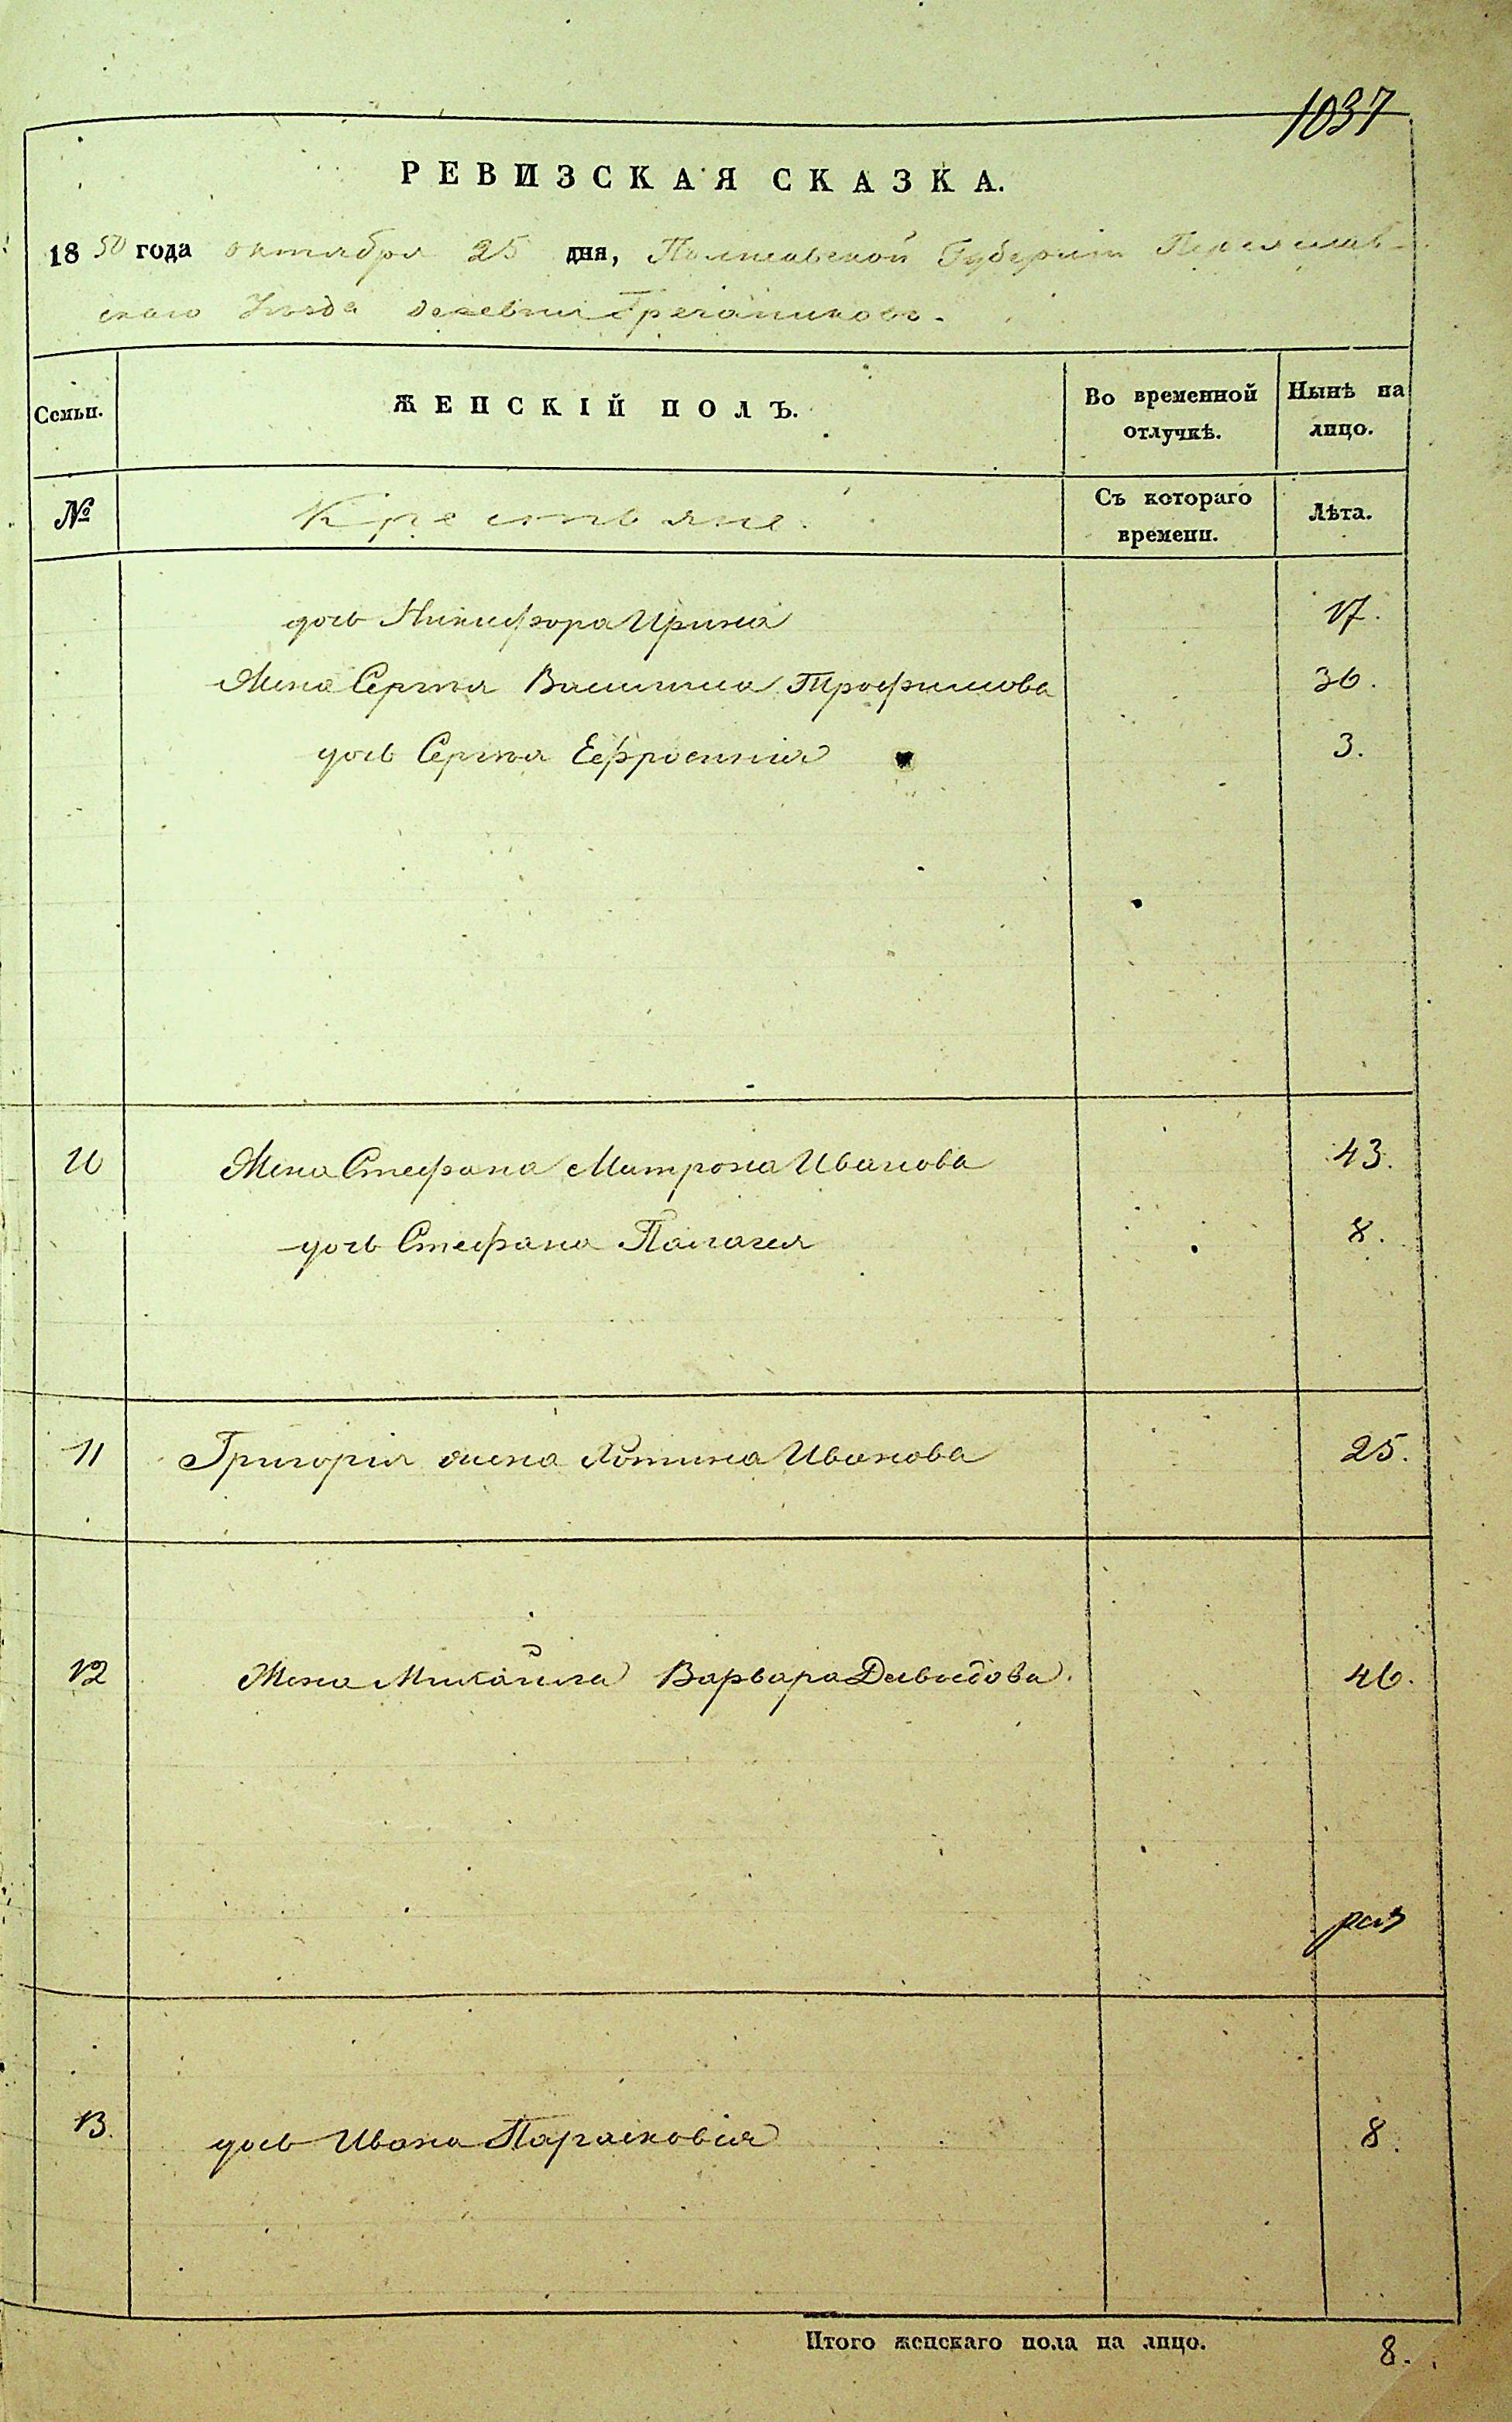 1037
РЕВИЗСКАЯ СКАЗКА.
1850 года октября 25 дня, Полтавской Губернiи Переяслав-
скаго Уѣзда деревни Гречаниковъ.
Семьи. ЖЕНСКІЙ ПОЛЪ. Во временной отлучкѣ. Нынѣ на лицо.
№ Крестьяне. Съ котораго времени. Лѣта.
дочь Никифора Ирина 17.
Жена Сергѣя Василиса Трофимова 36.
дочь Сергѣя Ефросинія 3.
10 Жена Стефана Матрона Иванова 43.
дочь Стефана Палагея 8.
11 Григорія жена Хотина Иванова 25.
12 Жена Михайла Варвара Давидова. 46.
13. дочь Ивана Парасковія 8.
Итого женскаго пола на лицо. 8.